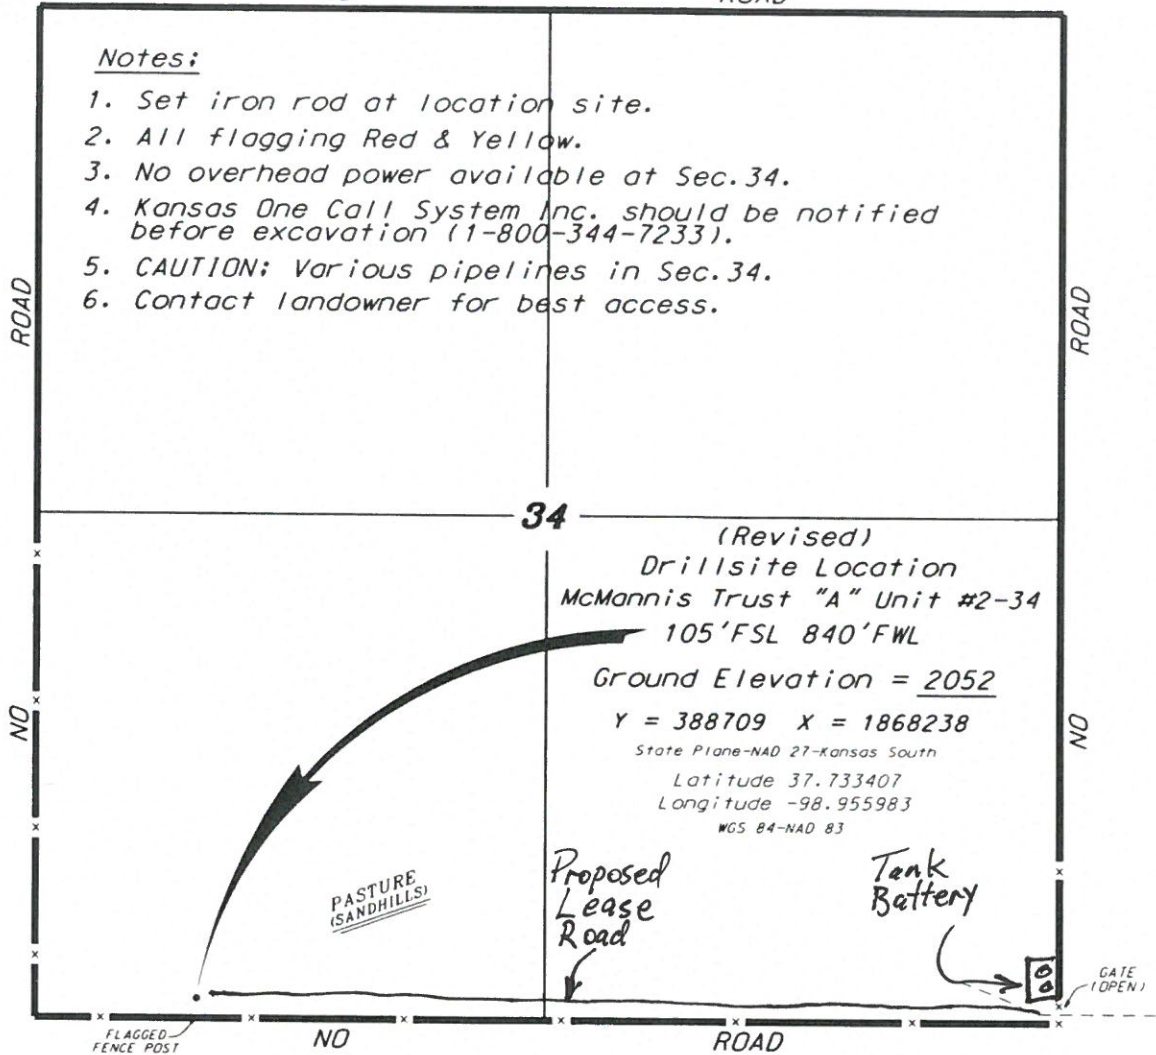 ROAD
Notes:
1. Set iron rod at location site.
2. All flagging Red & Yellow.
3. No overhead power available at Sec.34.
4. Kansas One Call System Inc. should be notified
before excavation (1-800-344-7233).
5. CAUTION: Various pipelines in Sec.34.
6. Contact landowner for best access.
ROAD
ROAD
34
(Revised)
Drillsite Location
McMannis Trust "A" Unit #2-34
105'FSL 840'FWL
Ground Elevation = 2052
Y = 388709 X = 1868238
State Plane-NAD 27-Kansas South
Latitude 37.733407
Longitude -98.955983
WGS 84-NAD 83
NO
NO
PASTURE
(SANDHILLS)
Proposed
Lease
Road
Tank
Battery
GATE
(OPEN)
FLAGGED
FENCE POST
NO
ROAD